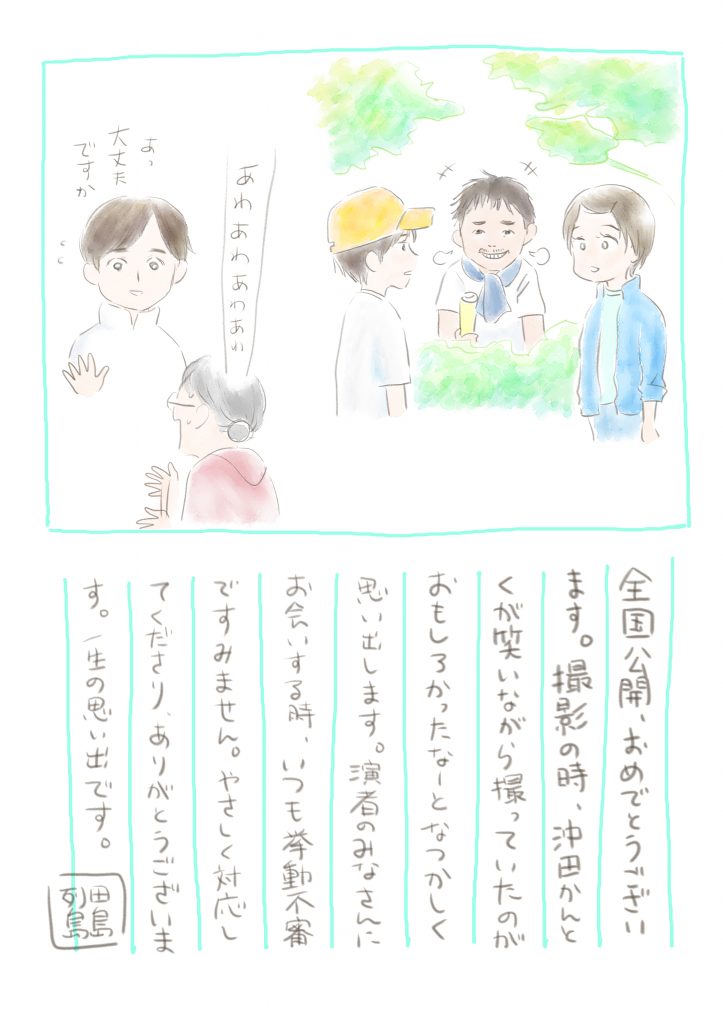 あっ
大丈夫
ですか
あわあわあわあわ
全国公開、おめでとうござい
ます。撮影の時、沖田かんと
くが笑いながら撮っていたのが
おもしろかったなーとなつかしく
思い出します。演者のみなさんに
お会いする時、いつも挙動不審
ですみません。やさしく対応し
てくださり、ありがとうございま
す。一生の思い出です。
田島
列島